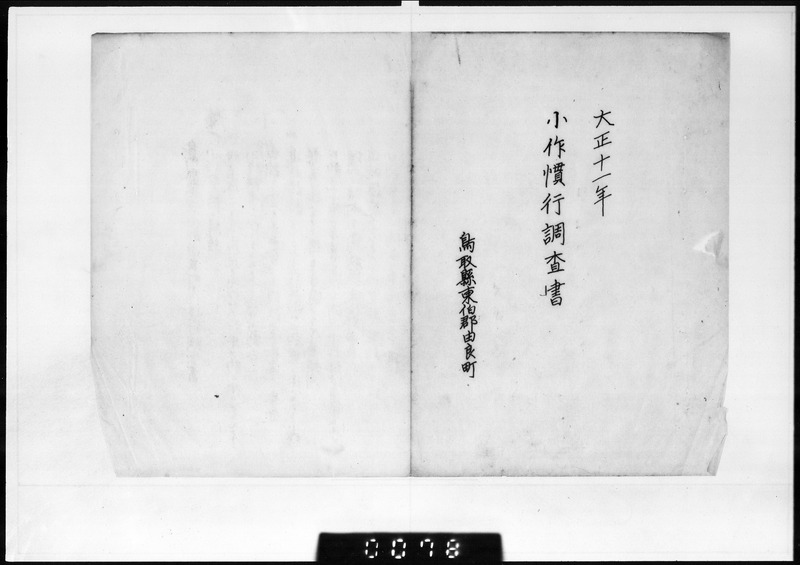 大正十一年
小作慣行調査書
鳥取縣東伯郡由良町
0078